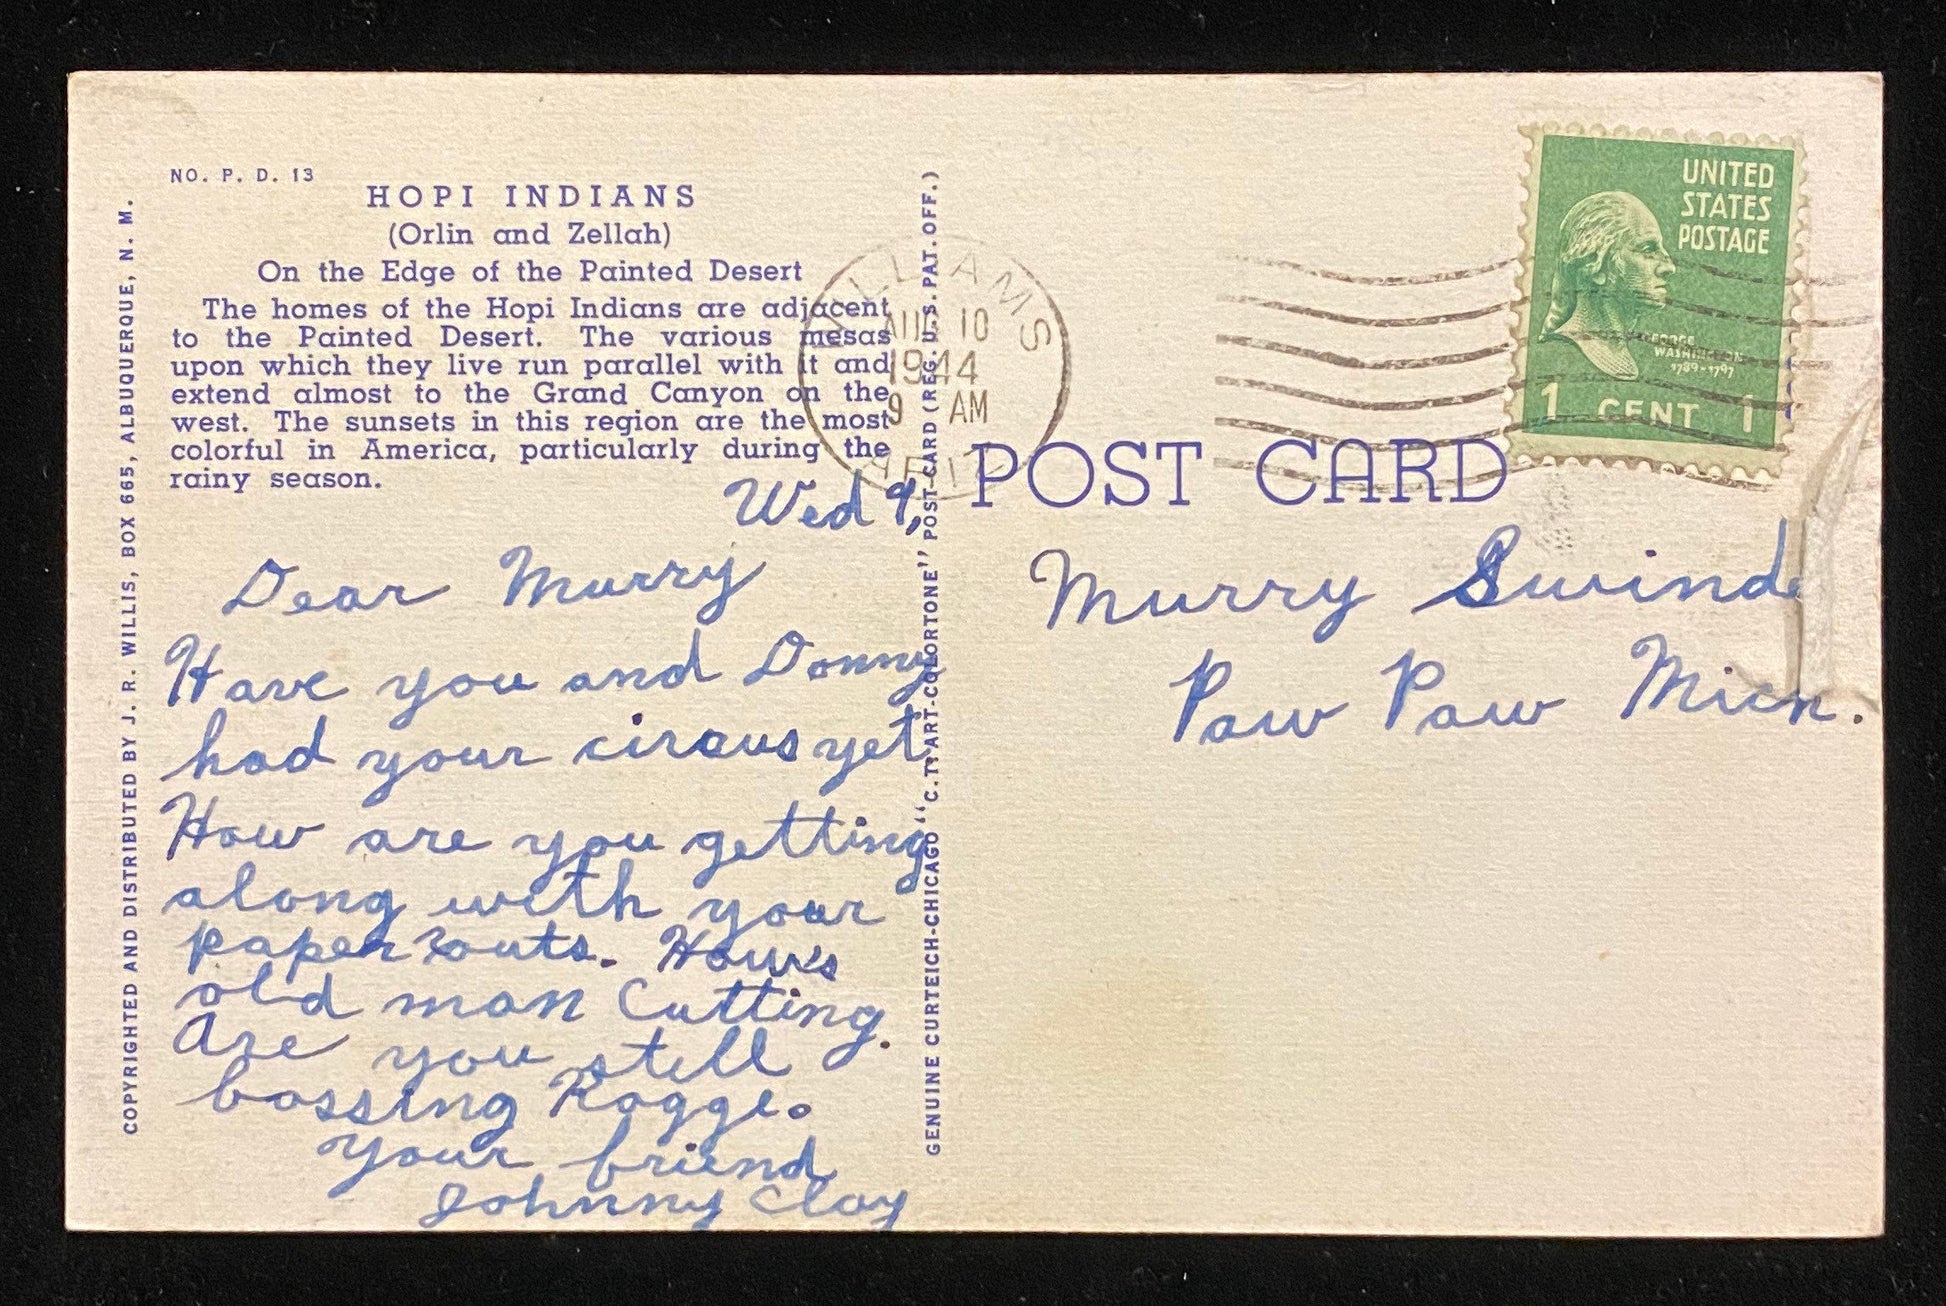 NO. P. D. 13
HOPI INDIANS
(Orlin and Zellah)
On the Edge of the Painted Desert
The homes of the Hopi Indians are adjacent
to the Painted Desert. The various mesas
upon which they live run parallel with it and
extend almost to the Grand Canyon on the
west. The sunsets in this region are the most
colorful in America, particularly during the
rainy season.
COPYRIGHTED AND DISTRIBUTED BY J. R. WILLIS, BOX 665, ALBUQUERQUE, N. M.
Wed 9,
Dear Murry
Have you and Donny
had your circus yet.
How are you getting
along with your
paper routs. How's
old man Cutting.
Are you still
bossing Rogge.
Your friend
Johnny Clay
GENUINE CURTEICH-CHICAGO "C. T. ART-COLORTONE" POST CARD (REG. U.S. PAT. OFF.)
WILLIAMS
AUG 10
1944
9 AM
ARIZ
POST CARD
UNITED
STATES
POSTAGE
GEORGE
WASHINGTON
1789-1797
1 CENT 1
Murry
Paw Paw Mich.